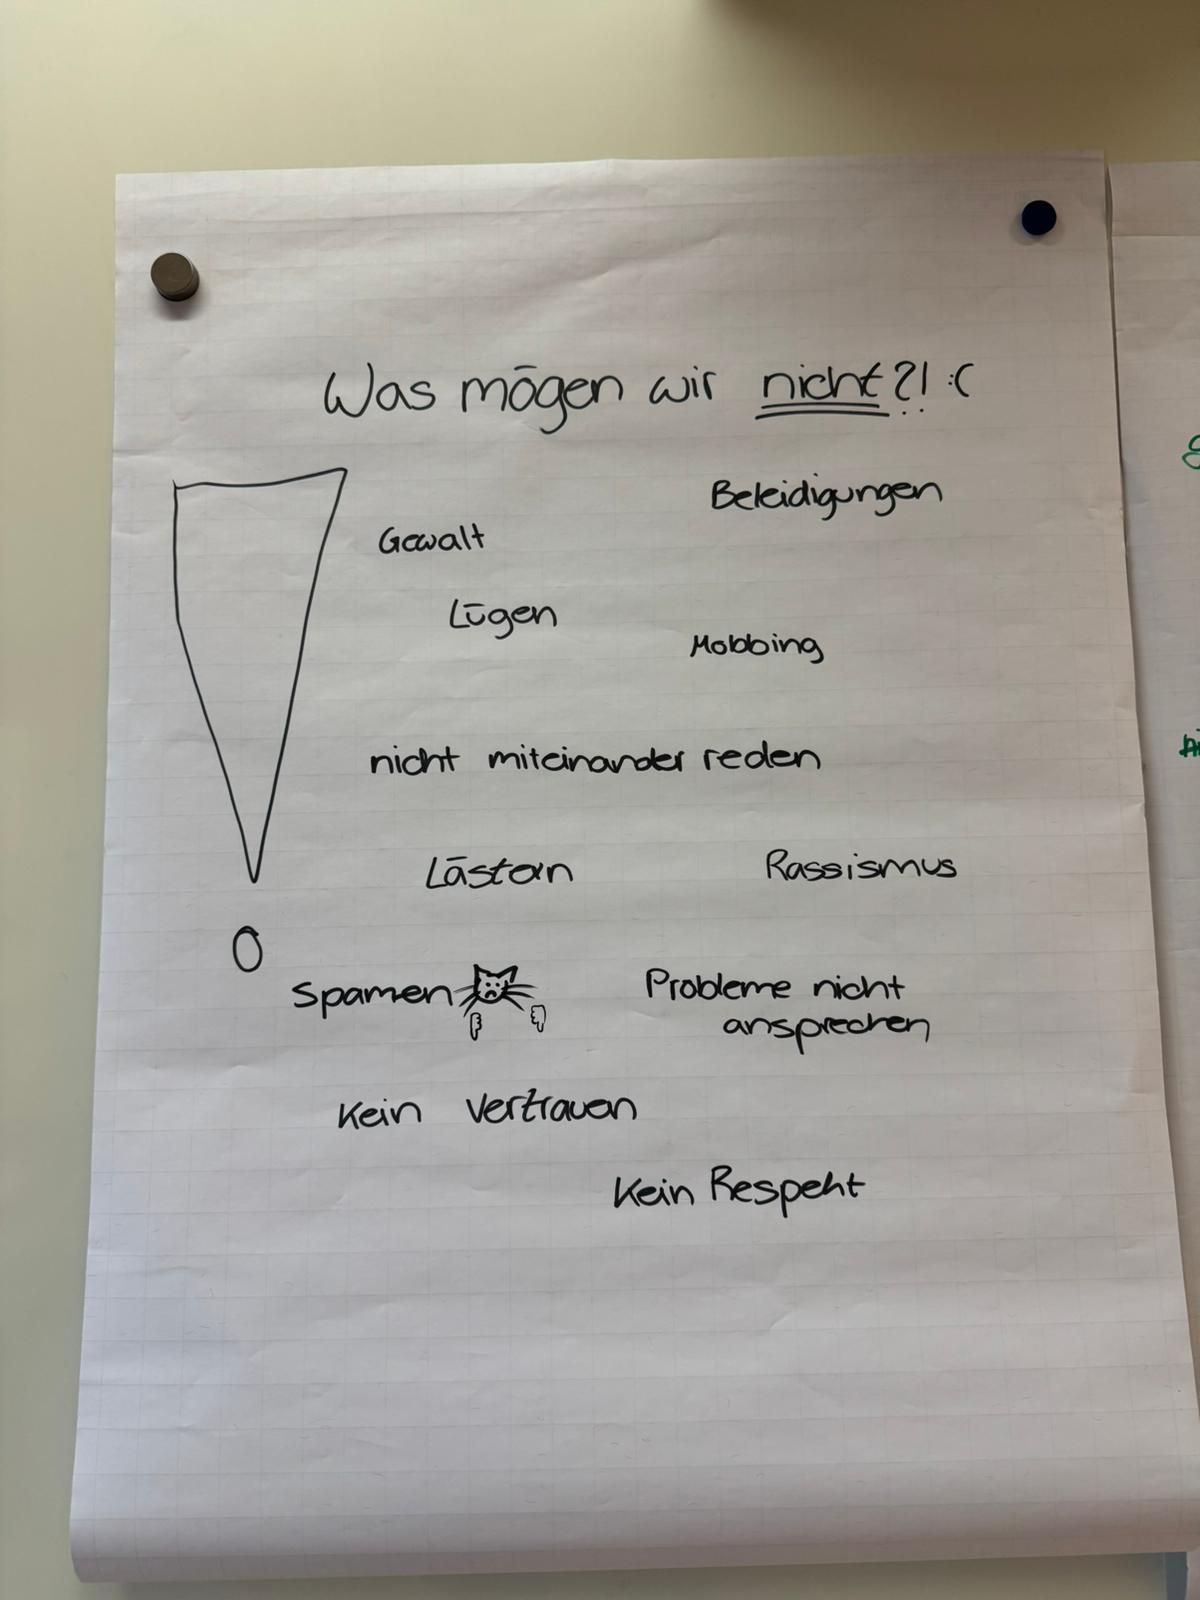 Was mögen wir nicht?! :(
Beleidigungen
Gewalt
Lügen
Mobbing
nicht miteinander reden
Lästern
Rassismus
Spamen
Probleme nicht
ansprechen
Kein Vertrauen
Kein Respekt